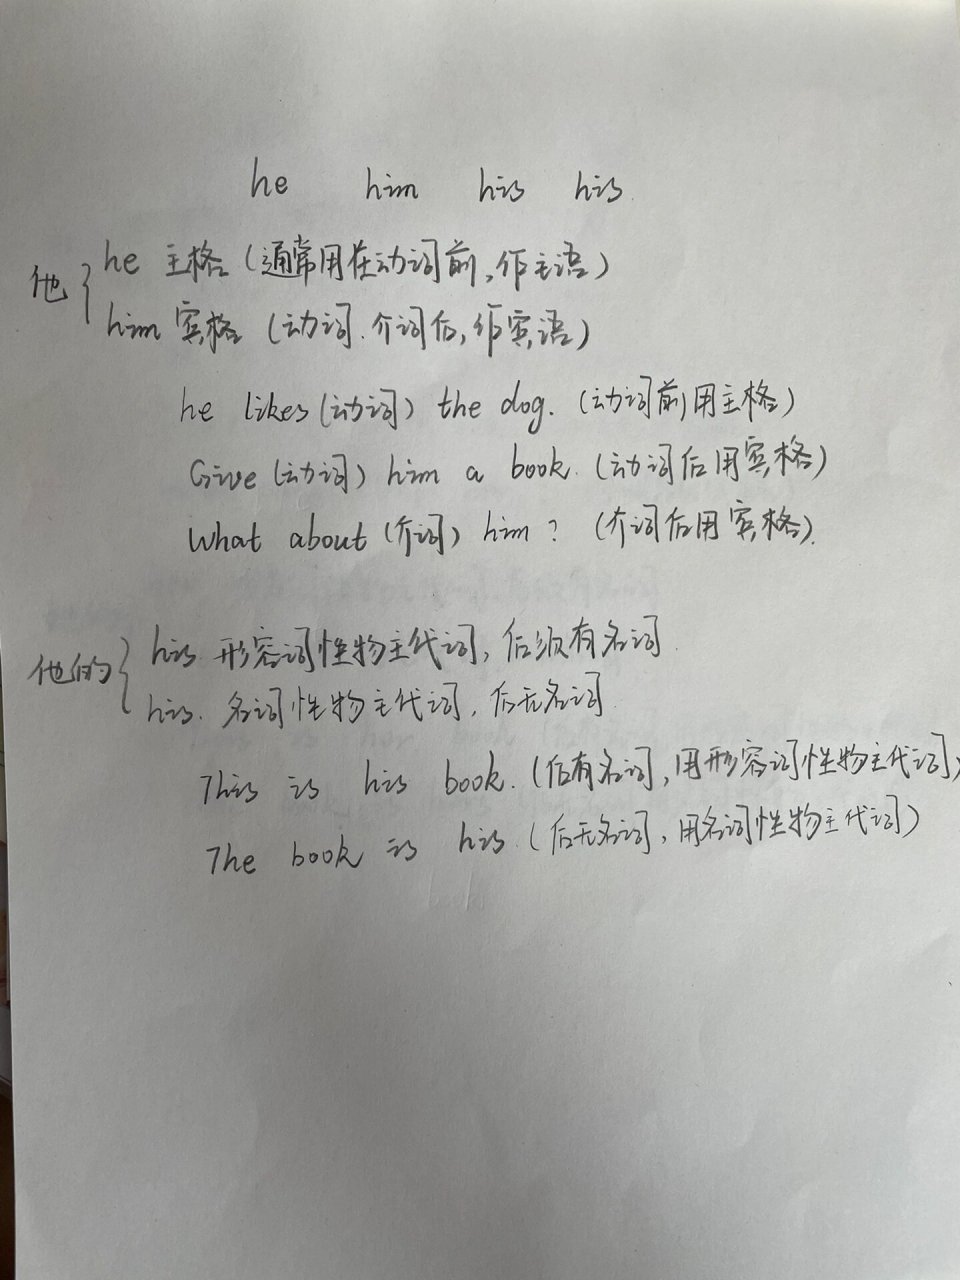 he him his his
他{he 主格(通常用在动词前,作主语)
him 宾格(动词.介词后,作宾语)
he likes(动词) the dog.(动词前用主格)
Give(动词) him a book.(动词后用宾格)
What about(介词) him?(介词后用宾格).
他的{his 形容词性物主代词,后须有名词.
his.名词性物主代词,后无名词.
This is his book.(后有名词,用形容词性物主代词)
The book is his.(后无名词,用名词性物主代词)